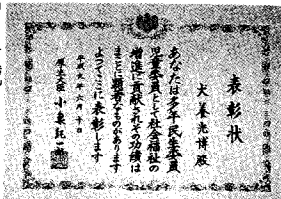 表彰状
犬養光博殿
あなたは多年民生委員
児童委員として社会福祉の
増進に貢献されその功績は
まことに顕著なものがあります
よってここに表彰します
平成九年六月十日
厚生大臣 小泉純一郎